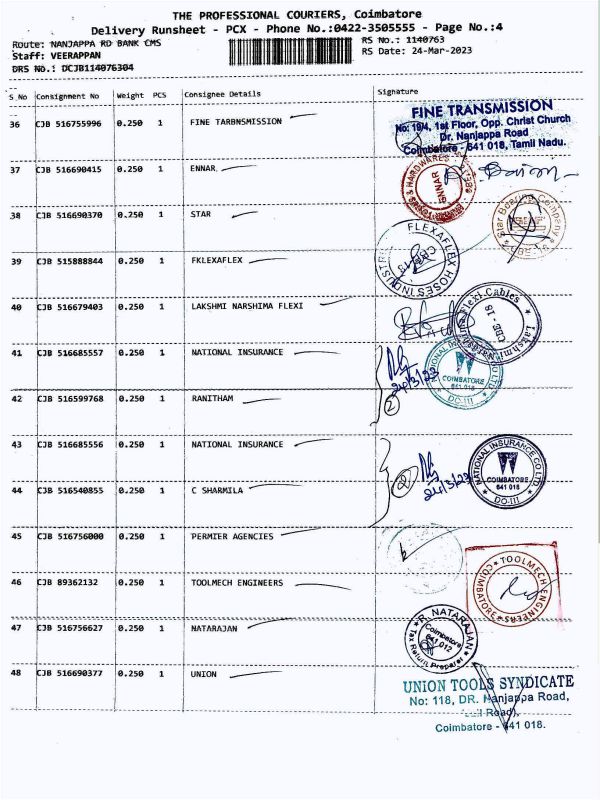 THE PROFESSIONAL COURIERS, Coimbatore
Delivery Runsheet - PCX - Phone No.:0422-3505555 - Page No.:4
Route: NANJAPPA RD BANK CMS
RS No.: 1140763
Staff: VEERAPPAN
RS Date: 24-Mar-2023
DRS No.: DCJB114076304
S No Consignment No Weight PCS Consignee Details Signature
36 CJB 516755996 0.250 1 FINE TARBNSMISSION
FINE TRANSMISSION
No: 19/4, 1st Floor, Opp. Christ Church
Dr. Nanjappa Road
Coimbatore - 641 018, Tamil Nadu.
37 CJB 516690415 0.250 1 ENNAR
& HARDWARES
38 CJB 516690370 0.250 1 STAR
Star Bearing Company
39 CJB 515888844 0.250 1 FKLEXAFLEX
FLEXAFLEX HOSES INDUSTRI
CBE-18
40 CJB 516679403 0.250 1 LAKSHMI NARSHIMA FLEXI
Lakshmi Narashima Flexi Cables
CBE - 18
41 CJB 516685557 0.250 1 NATIONAL INSURANCE
24/3/23
2
NATIONAL INSURANCE CO LTD
COIMBATORE
DO-III
42 CJB 516599768 0.250 1 RANITHAM
43 CJB 516685556 0.250 1 NATIONAL INSURANCE
24/3/23
2
NATIONAL INSURANCE CO LTD
COIMBATORE
641 018
DO-III
44 CJB 516540855 0.250 1 C SHARMILA
45 CJB 516756000 0.250 1 PERMIER AGENCIES
46 CJB 89362132 0.250 1 TOOLMECH ENGINEERS
TOOLMECH ENGINEERS
COIMBATORE
47 CJB 516756627 0.250 1 NATARAJAN
R. NATARAJAN
Coimbatore
641 012
Tax Return Preparer
48 CJB 516690377 0.250 1 UNION
UNION TOOLS SYNDICATE
No: 118, DR. Nanjappa Road,
Road),
Coimbatore - 641 018.